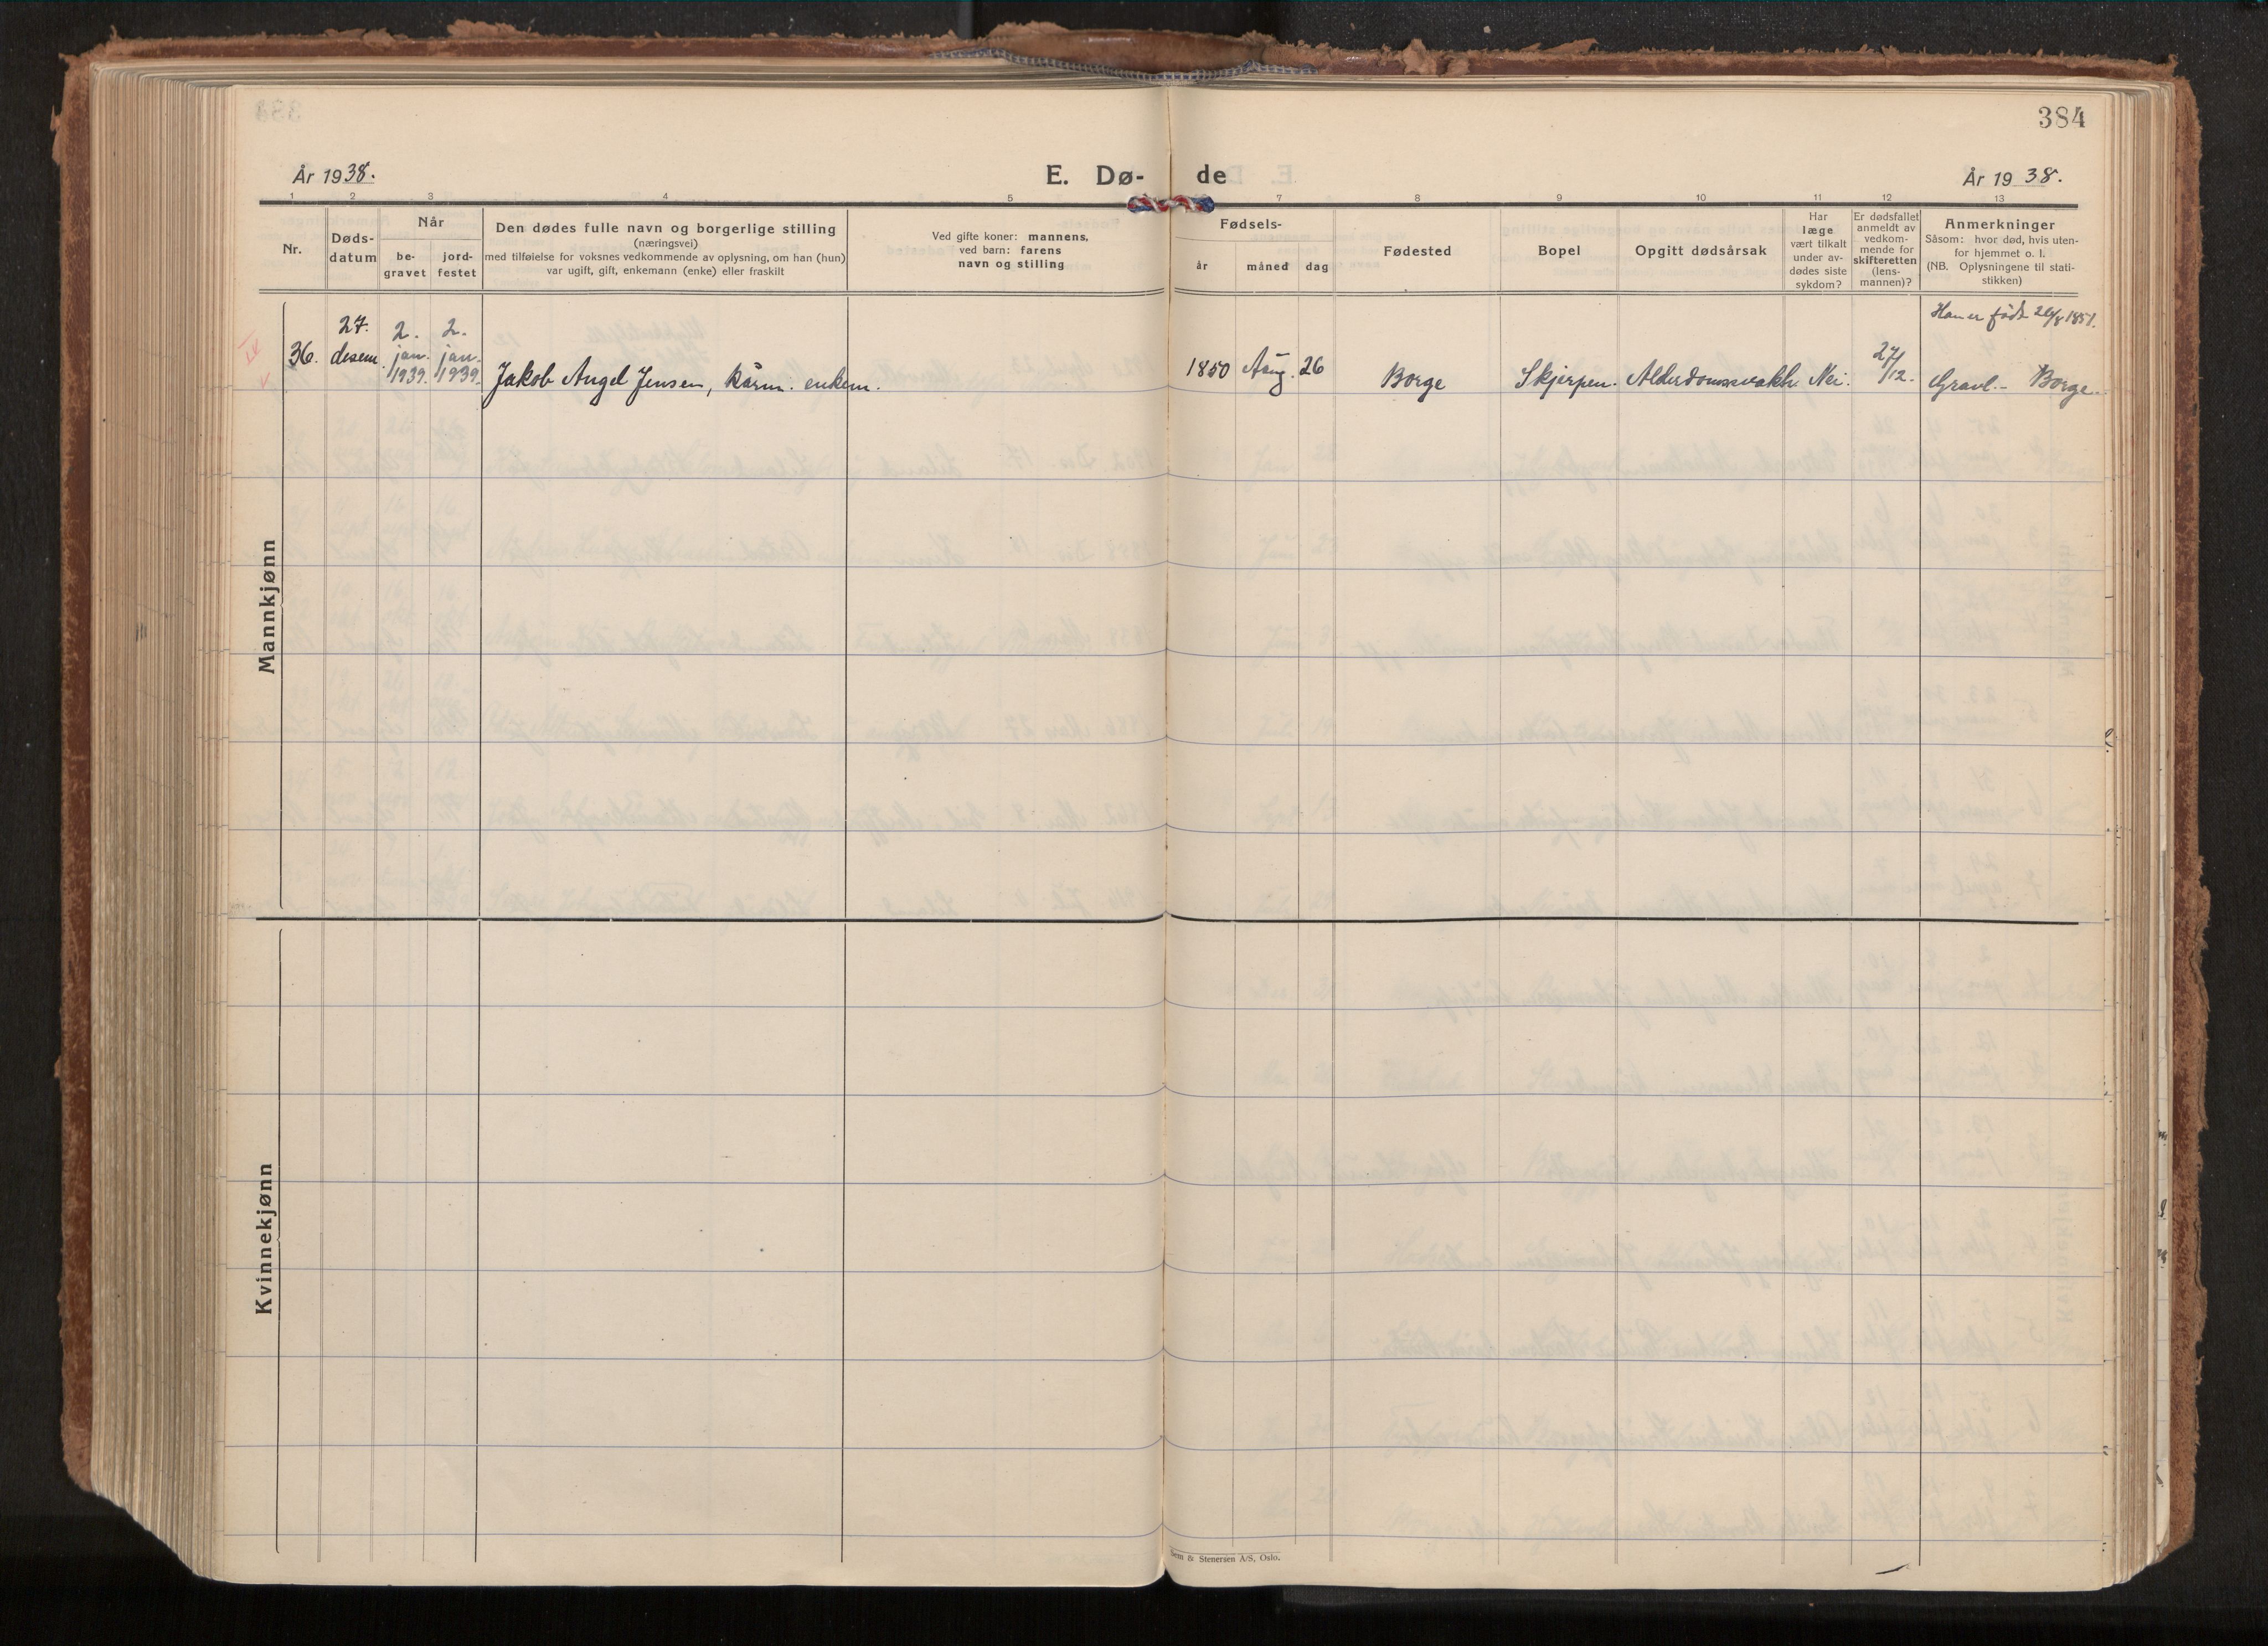 384
År 1938.
E. Dø- de
År 1938.
1 2 3 4 5 7 8 9 10 11 12 13
Nr.
Døds-
datum
Når
be-
gravet
jord-
festet
Den dødes fulle navn og borgerlige stilling
(næringsvei)
med tilføielse for voksnes vedkommende av oplysning, om han (hun)
var ugift, gift, enkemann (enke) eller fraskilt
Ved gifte koner: mannens,
ved barn: farens
navn og stilling
Fødsels-
år måned dag
Fødested
Bopel
Opgitt dødsårsak
Har
læge
vært tilkalt
under av-
dødes siste
sykdom?
Er dødsfallet
anmeldt av
vedkom-
mende for
skifteretten
(lens-
mannen)?
Anmerkninger
Såsom: hvor død, hvis uten-
for hjemmet o. l.
(NB. Oplysningene til stati-
stikken)
Mannkjønn
36.
27.
desem.
2.
jan.
1939.
2.
jan.
1939.
Jakob Angel Jensen, kårm. enkem.
1850 Aug. 26
Borge
Skjerpen.
Alderdomssvakh.
Nei.
27/12.
Han er født 26/8 1851.
Gravl. - Borge.
Kvinnekjønn
& Stenersen A/S, Oslo.